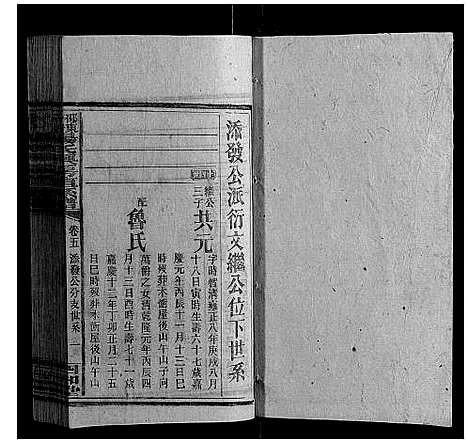 添發公派衍文繼公位下世系
繼公
三子
共元
字時哲清雍正八年庚戌八月
十八日寅時生壽六十七歲嘉
慶元年丙辰十一月十三日巳
時歿葬木衝屋後山午山子向
配
魯氏
萬爵之女清乾隆元年丙辰四
月十二日酉時生壽七十一歲
嘉慶十二年丁卯正月二十五
日巳時歿葬木衝屋後山午山
卷五
添發公分支世系
一